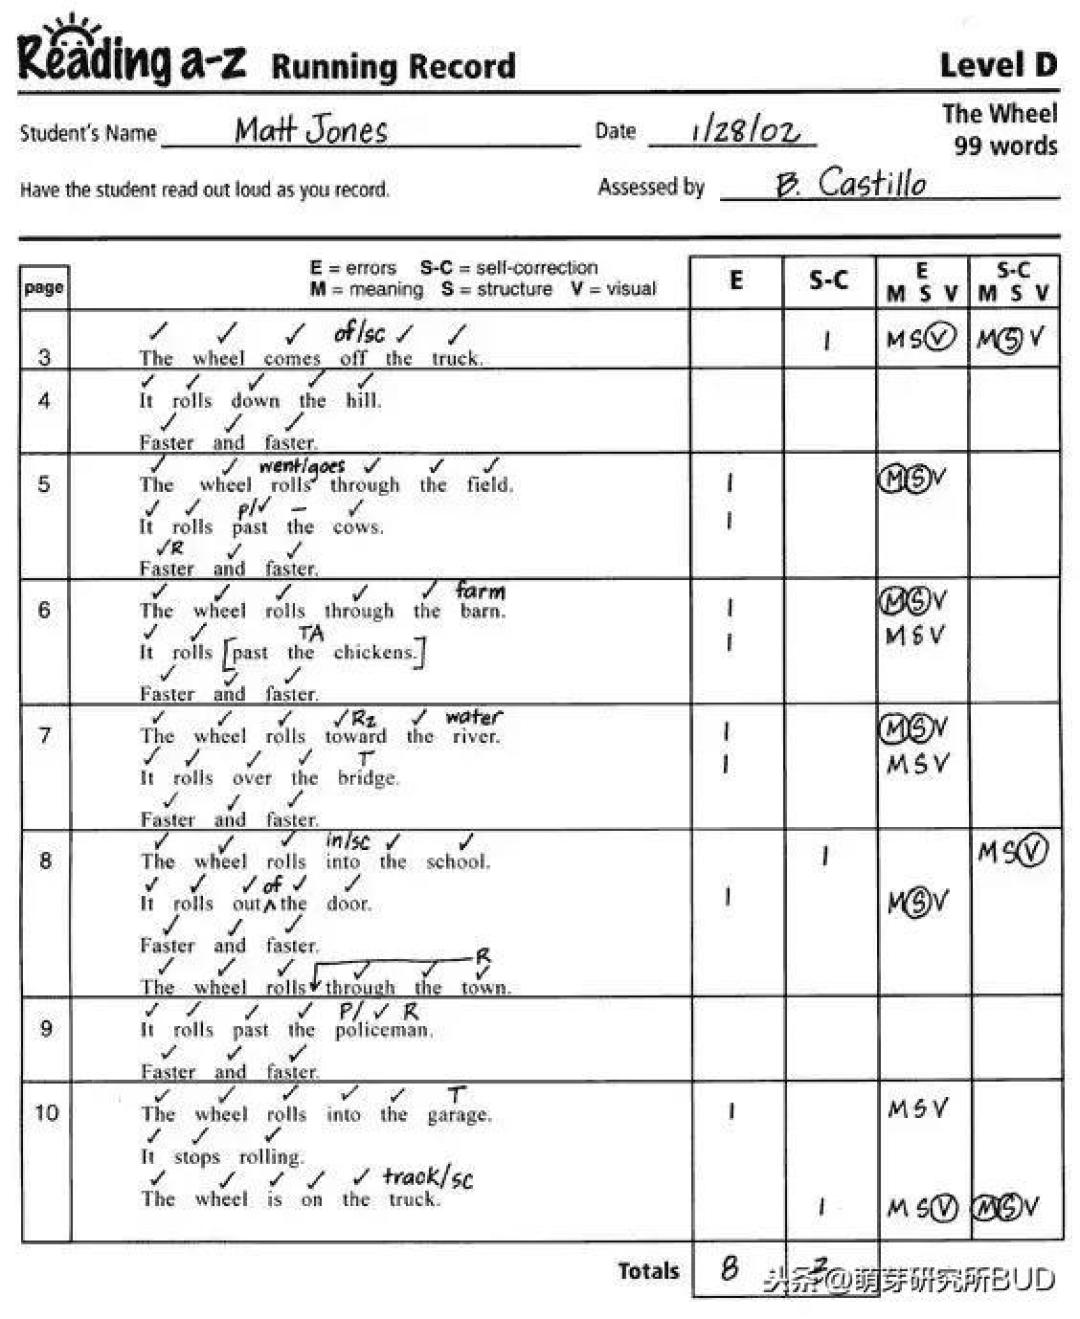 Reading a-z Running Record Level D
Student's Name Matt Jones Date 1/28/02 The Wheel
99 words
Have the student read out loud as you record. Assessed by B. Castillo
page E = errors S-C = self-correction E S-C E S-C
M = meaning S = structure V = visual M S V M S V
✓ ✓ ✓ of/sc ✓ ✓
3 The wheel comes off the truck. 1 M S V M S V
✓ ✓ ✓ ✓ ✓
4 It rolls down the hill.
✓ ✓ ✓
Faster and faster.
✓ ✓ went/goes ✓ ✓ ✓
5 The wheel rolls through the field. 1 M S V
✓ ✓ p/✓ – ✓
It rolls past the cows. 1
✓R ✓ ✓
Faster and faster.
✓ ✓ ✓ ✓ ✓ farm
6 The wheel rolls through the barn. 1 M S V
✓ ✓ TA
It rolls [past the chickens.] 1 M S V
✓ ✓ ✓
Faster and faster.
✓ ✓ ✓ ✓R2 ✓ water
7 The wheel rolls toward the river. 1 M S V
✓ ✓ ✓ ✓ T
It rolls over the bridge. 1 M S V
✓ ✓ ✓
Faster and faster.
✓ ✓ ✓ in/sc ✓ ✓
8 The wheel rolls into the school. 1 M S V
✓ ✓ ✓ of ✓ ✓
It rolls out ^ the door. 1 M S V
✓ ✓ ✓
Faster and faster.
✓ ✓ ✓ ✓ ✓ ✓ R
The wheel rolls through the town.
✓ ✓ ✓ ✓ P/ ✓ R
9 It rolls past the policeman.
✓ ✓ ✓
Faster and faster.
✓ ✓ ✓ ✓ ✓ T
10 The wheel rolls into the garage. 1 M S V
✓ ✓ ✓
It stops rolling.
✓ ✓ ✓ ✓ ✓ track/sc
The wheel is on the truck. 1 M S V M S V
Totals 8 3
头条@萌芽研究所BUD